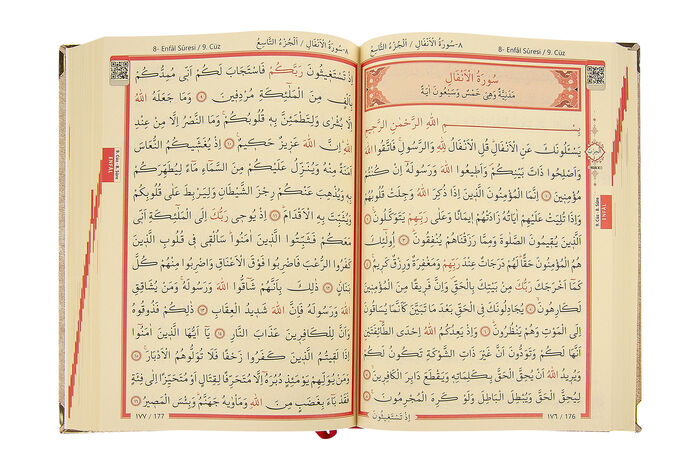 ٨-سُورَةُ الْاَنْفَالِ / اَلْجُزْءُ التَّاسِعُ
8- Enfâl Sûresi / 9. Cüz
سُورَةُ الْاَنْفَالِ
مَدَنِيَّةٌ وَهِيَ خَمْسٌ وَسَبْعُونَ اٰيَةً
بِسْمِ اللّٰهِ الرَّحْمٰنِ الرَّحِيمِ
يَسْـَٔلُونَكَ عَنِ الْاَنْفَالِ قُلِ الْاَنْفَالُ لِلّٰهِ وَالرَّسُولِ فَاتَّقُوا اللّٰهَ
وَاَصْلِحُوا ذَاتَ بَيْنِكُمْ وَاَطِيعُوا اللّٰهَ وَرَسُولَهُٓ اِنْ كُنْتُمْ
مُؤْمِنِينَ ١ اِنَّمَا الْمُؤْمِنُونَ الَّذِينَ اِذَا ذُكِرَ اللّٰهُ وَجِلَتْ قُلُوبُهُمْ
وَاِذَا تُلِيَتْ عَلَيْهِمْ اٰيَاتُهُ زَادَتْهُمْ اِيمَانًا وَعَلٰى رَبِّهِمْ يَتَوَكَّلُونَ ٢
اَلَّذِينَ يُقِيمُونَ الصَّلٰوةَ وَمِمَّا رَزَقْنَاهُمْ يُنْفِقُونَ ٣ اُو۬لٰٓئِكَ
هُمُ الْمُؤْمِنُونَ حَقًّا لَهُمْ دَرَجَاتٌ عِنْدَ رَبِّهِمْ وَمَغْفِرَةٌ وَرِزْقٌ كَرِيمٌ ٤
كَمَٓا اَخْرَجَكَ رَبُّكَ مِنْ بَيْتِكَ بِالْحَقِّ وَاِنَّ فَرِيقًا مِنَ الْمُؤْمِنِينَ
لَكَارِهُونَ ٥ يُجَادِلُونَكَ فِي الْحَقِّ بَعْدَ مَا تَبَيَّنَ كَاَنَّمَا يُسَاقُونَ
اِلَى الْمَوْتِ وَهُمْ يَنْظُرُونَ ٦ وَاِذْ يَعِدُكُمُ اللّٰهُ اِحْدَى الطَّٓائِفَتَيْنِ
اَنَّهَا لَكُمْ وَتَوَدُّونَ اَنَّ غَيْرَ ذَاتِ الشَّوْكَةِ تَكُونُ لَكُمْ
وَيُرِيدُ اللّٰهُ اَنْ يُحِقَّ الْحَقَّ بِكَلِمَاتِهِ وَيَقْطَعَ دَابِرَ الْكَافِرِينَ ٧
لِيُحِقَّ الْحَقَّ وَيُبْطِلَ الْبَاطِلَ وَلَوْ كَرِهَ الْمُجْرِمُونَ ٨
اِذْ تَسْتَغِيثُونَ
١٧٦ / 176
9. Cüz - 8. Sûre
ENFÂL
٨-سُورَةُ الْاَنْفَالِ / اَلْجُزْءُ التَّاسِعُ
8- Enfâl Sûresi / 9. Cüz
اِذْ تَسْتَغِيثُونَ رَبَّكُمْ فَاسْتَجَابَ لَكُمْ اَنِّي مُمِدُّكُمْ
بِاَلْفٍ مِنَ الْمَلٰٓئِكَةِ مُرْدِفِينَ ٩ وَمَا جَعَلَهُ اللّٰهُ
اِلَّا بُشْرٰى وَلِتَطْمَئِنَّ بِهِ قُلُوبُكُمْ وَمَا النَّصْرُ اِلَّا مِنْ عِنْدِ
اللّٰهِ اِنَّ اللّٰهَ عَزِيزٌ حَكِيمٌ ١٠ اِذْ يُغَشِّيكُمُ النُّعَاسَ
اَمَنَةً مِنْهُ وَيُنَزِّلُ عَلَيْكُمْ مِنَ السَّمَٓاءِ مَٓاءً لِيُطَهِّرَكُمْ
بِهِ وَيُذْهِبَ عَنْكُمْ رِجْزَ الشَّيْطَانِ وَلِيَرْبِطَ عَلٰى قُلُوبِكُمْ
وَيُثَبِّتَ بِهِ الْاَقْدَامَ ١١ اِذْ يُوحِي رَبُّكَ اِلَى الْمَلٰٓئِكَةِ اَنِّي
مَعَكُمْ فَثَبِّتُوا الَّذِينَ اٰمَنُوا سَاُلْقِي فِي قُلُوبِ الَّذِينَ
كَفَرُوا الرُّعْبَ فَاضْرِبُوا فَوْقَ الْاَعْنَاقِ وَاضْرِبُوا مِنْهُمْ كُلَّ
بَنَانٍ ١٢ ذٰلِكَ بِاَنَّهُمْ شَٓاقُّوا اللّٰهَ وَرَسُولَهُ وَمَنْ يُشَاقِقِ
اللّٰهَ وَرَسُولَهُ فَاِنَّ اللّٰهَ شَدِيدُ الْعِقَابِ ١٣ ذٰلِكُمْ فَذُوقُوهُ
وَاَنَّ لِلْكَافِرِينَ عَذَابَ النَّارِ ١٤ يَٓا اَيُّهَا الَّذِينَ اٰمَنُٓوا
اِذَا لَقِيتُمُ الَّذِينَ كَفَرُوا زَحْفًا فَلَا تُوَلُّوهُمُ الْاَدْبَارَ ١٥
وَمَنْ يُوَلِّهِمْ يَوْمَئِذٍ دُبُرَهُٓ اِلَّا مُتَحَرِّفًا لِقِتَالٍ اَوْ مُتَحَيِّزًا اِلٰى فِئَةٍ
فَقَدْ بَٓاءَ بِغَضَبٍ مِنَ اللّٰهِ وَمَأْوٰيهُ جَهَنَّمُ وَبِئْسَ الْمَصِيرُ ١٦
١٧٧ / 177
9. Cüz - 8. Sûre
ENFÂL